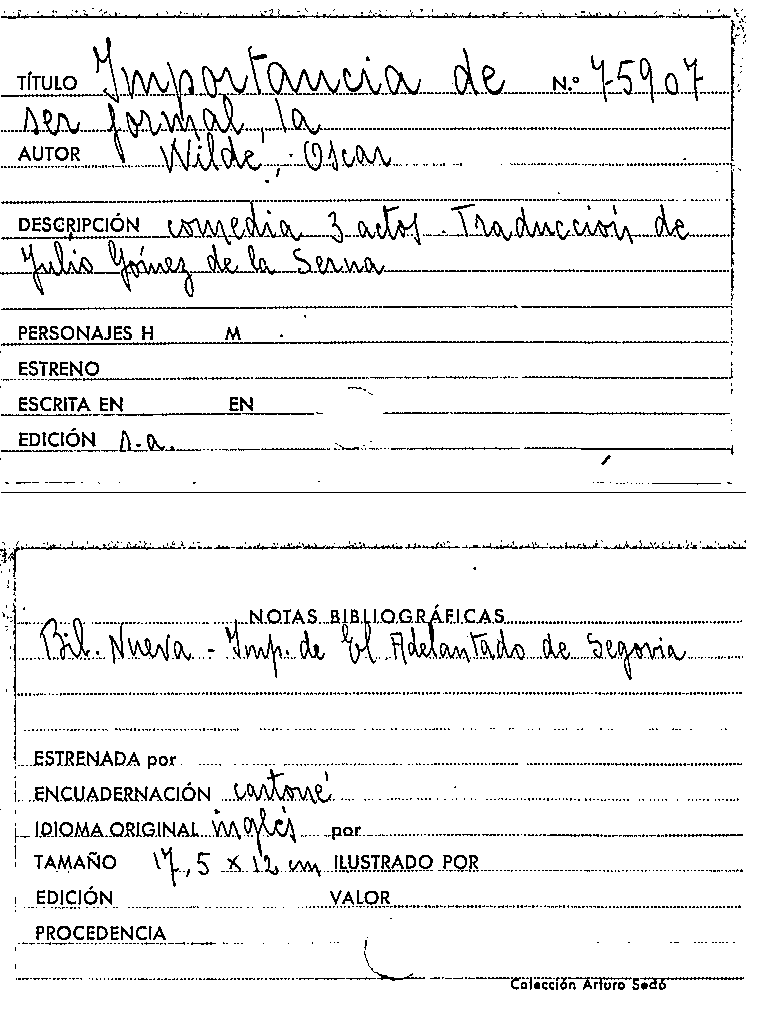 TÍTULO Importancia de N.º 75907
ser formal, la
AUTOR Wilde, Oscar
DESCRIPCIÓN comedia 3 actos. Traducción de
Julio Gómez de la Serna
PERSONAJES H M
ESTRENO
ESCRITA EN EN
EDICIÓN s.a.
NOTAS BIBLIOGRÁFICAS
Bib. Nueva - Imp. de El Adelantado de Segovia
ESTRENADA por
ENCUADERNACIÓN cartoné
IDIOMA ORIGINAL inglés por
TAMAÑO 17,5 x 12 cm ILUSTRADO POR
EDICIÓN VALOR
PROCEDENCIA
Colección Arturo Sedó